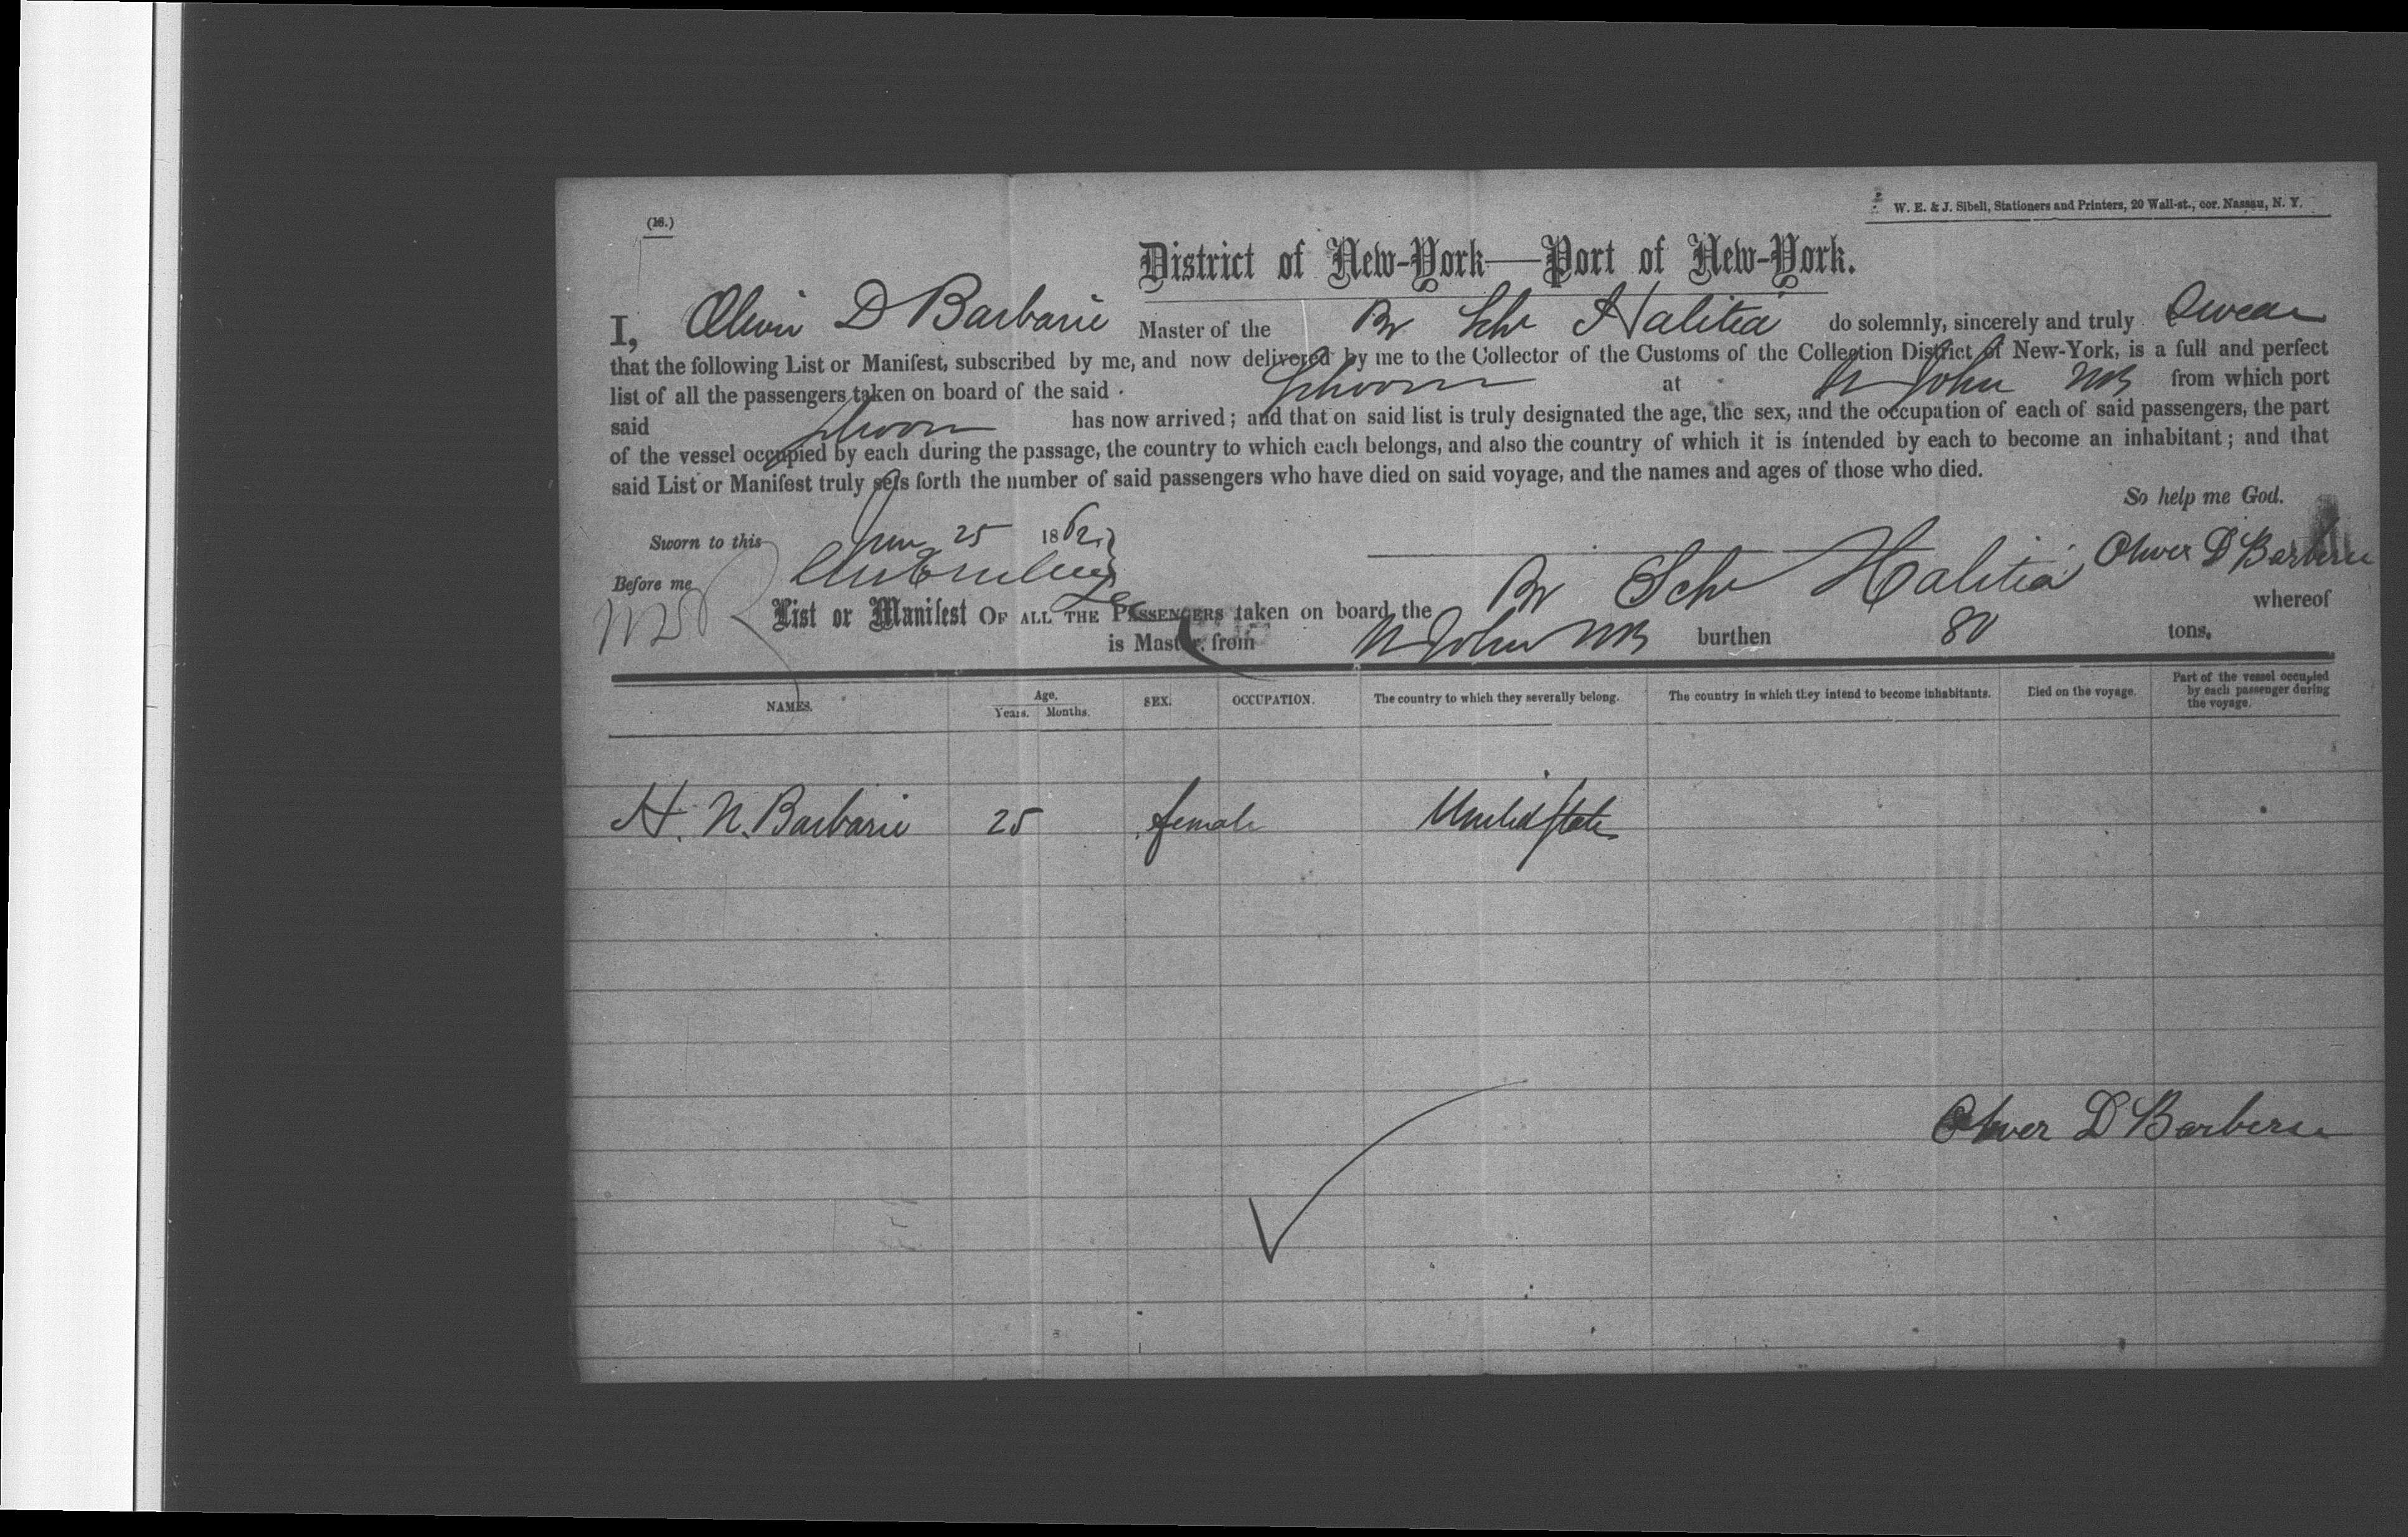 (18.)
W. E. & J. Sibell, Stationers and Printers, 20 Wall-st., cor. Nassau, N. Y.
District of New-York—Port of New-York.
I, Oliver D Barbarie Master of the Br Schr Halitia do solemnly, sincerely and truly Swear
that the following List or Manifest, subscribed by me, and now delivered by me to the Collector of the Customs of the Collection District of New-York, is a full and perfect
list of all the passengers taken on board of the said Schoon at St John NB from which port
said Schoon has now arrived; and that on said list is truly designated the age, the sex, and the occupation of each of said passengers, the part
of the vessel occupied by each during the passage, the country to which each belongs, and also the country of which it is intended by each to become an inhabitant; and that
said List or Manifest truly sets forth the number of said passengers who have died on said voyage, and the names and ages of those who died.
So help me God.
Sworn to this 25 1862
Oliver D Barberie
Before me
List or Manifest OF ALL THE PASSENGERS taken on board the Br Schr Halitia whereof
is Master, from St John NB burthen 80 tons.
NAMES. Age. Years. Months. SEX. OCCUPATION. The country to which they severally belong. The country in which they intend to become inhabitants. Died on the voyage. Part of the vessel occupied by each passenger during the voyage.
H. N. Barbarie 25 female United State
Oliver D Barberie